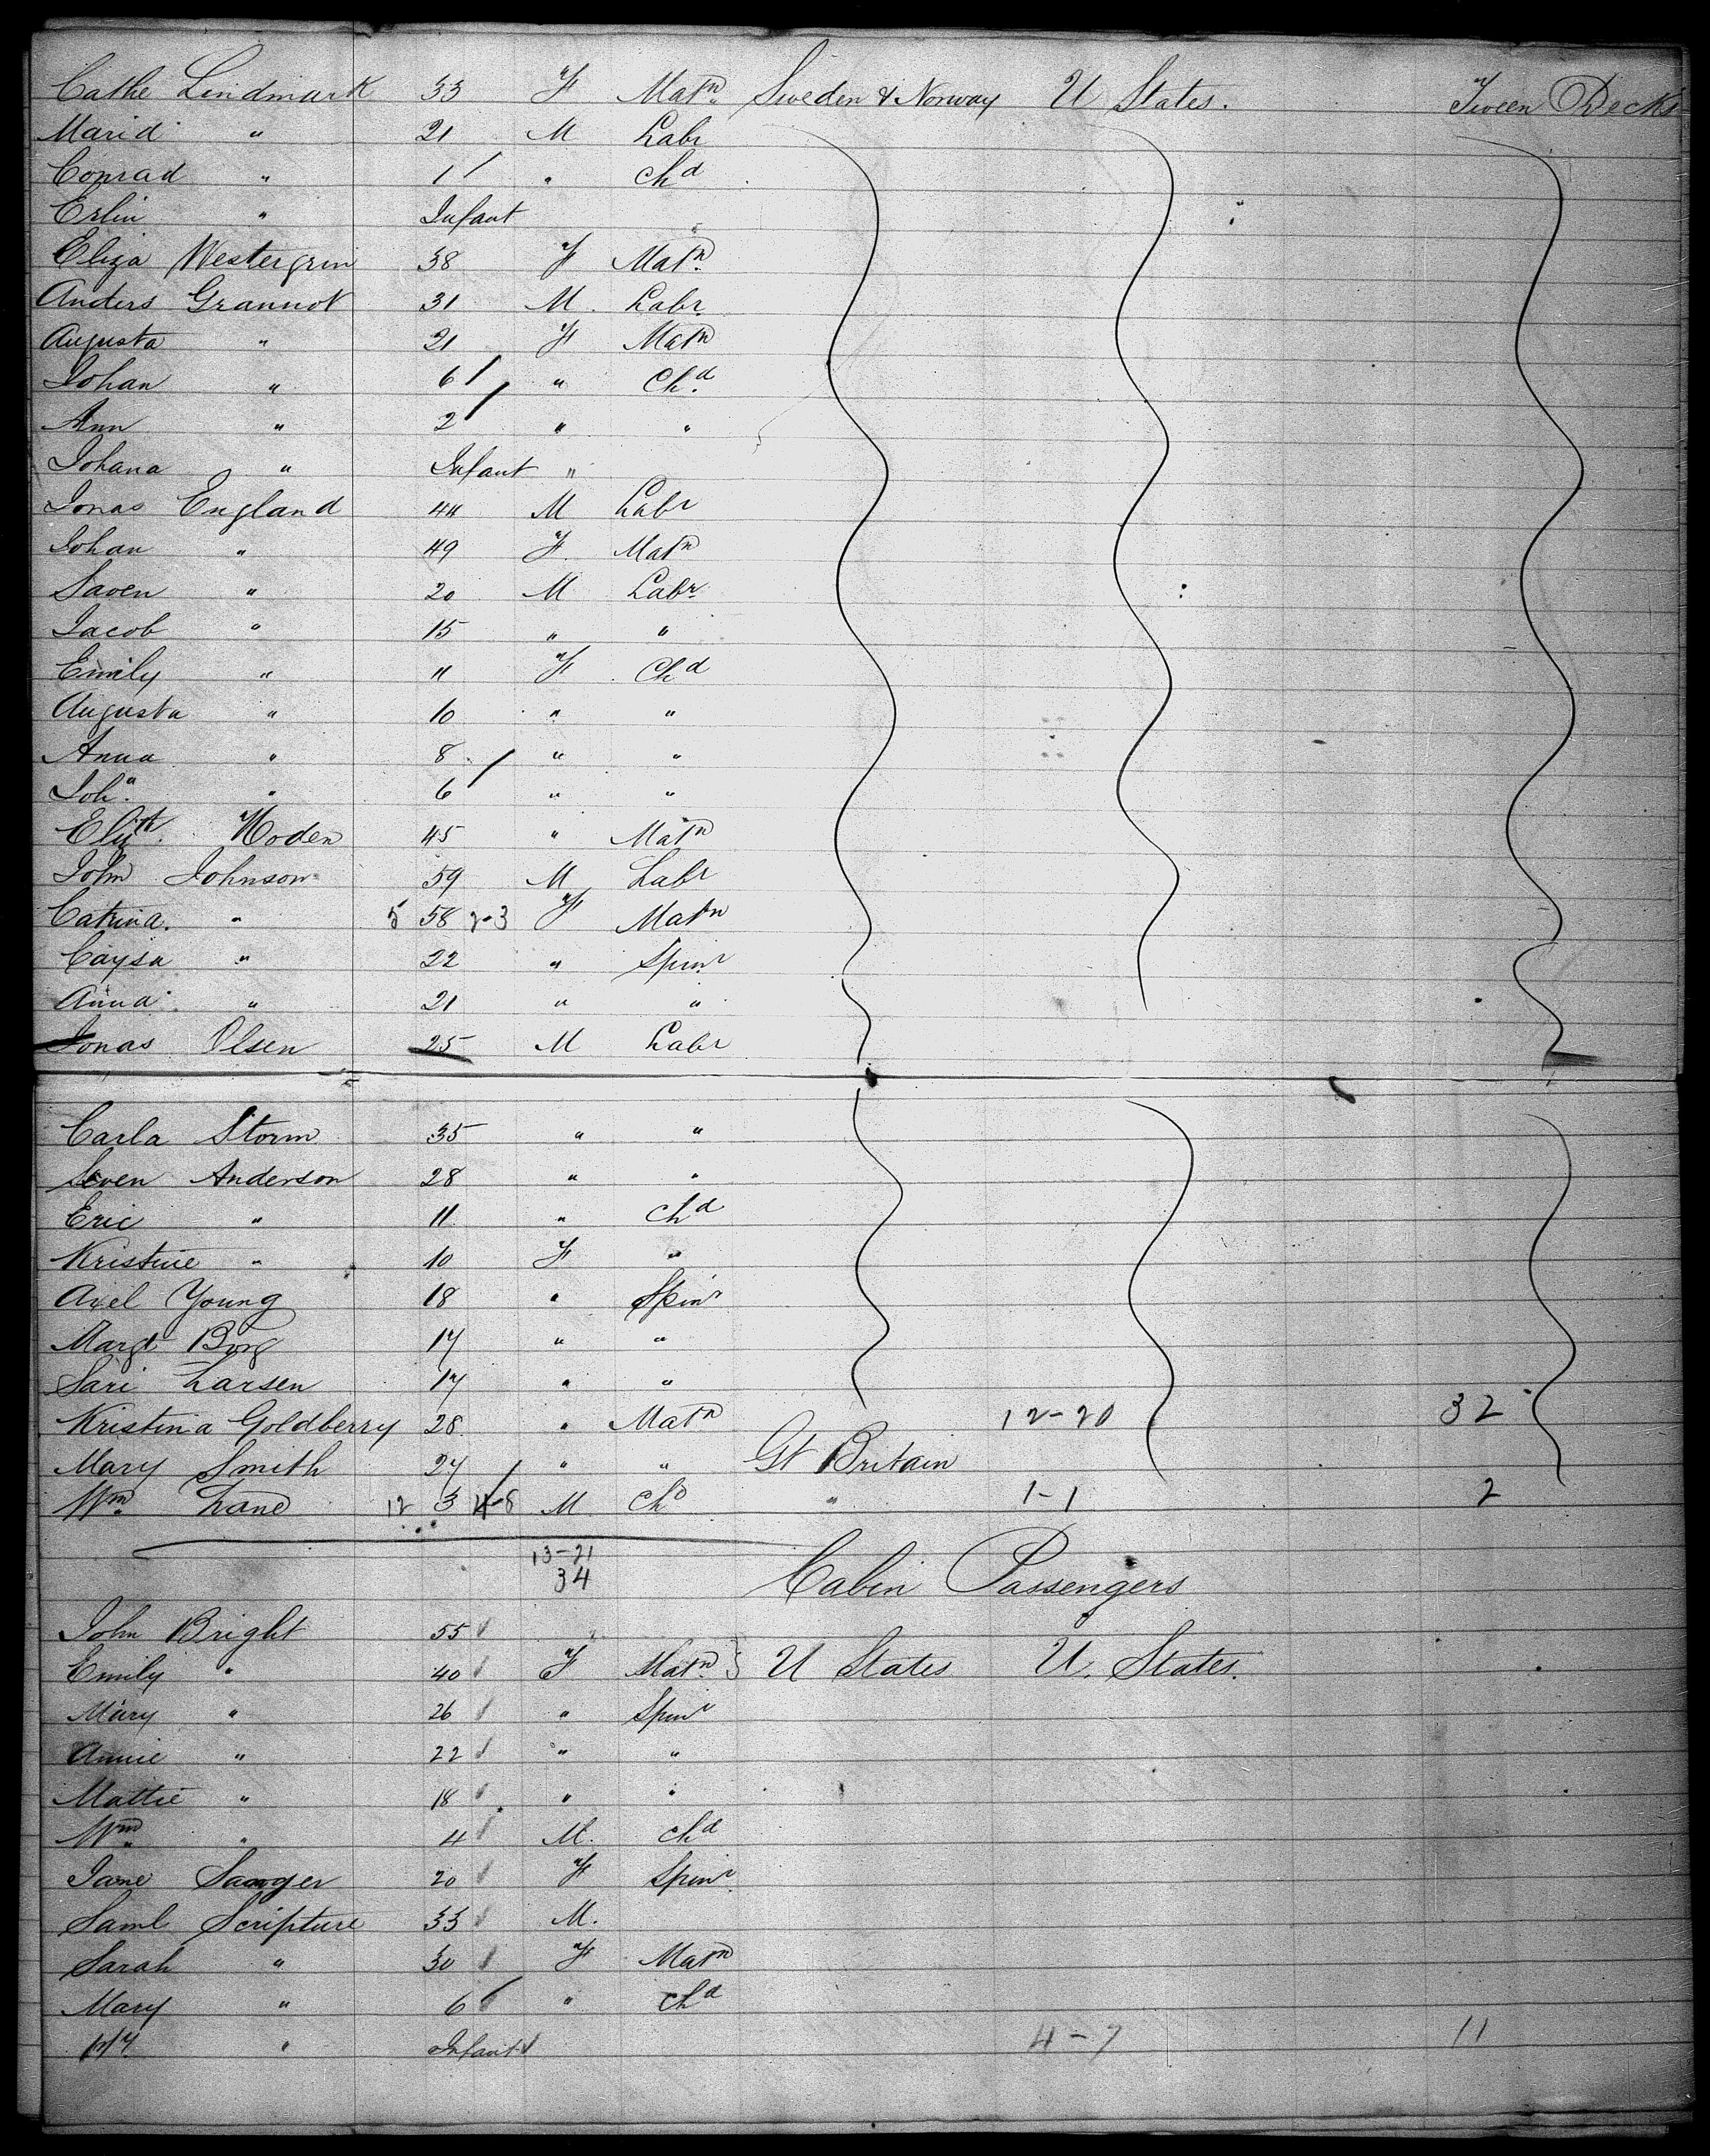 Cathe Lindmark 33 F Matn. Sweden & Norway U States. Tween Decks
Marid " 21 M Labr
Conrad " 1 " Chd
Erlin " Infant
Eliza Westergrin 38 F Matn.
Anders Grannot 31 M. Labr.
Augusta " 21 F Matn
Johan " 6 " Chd.
Ann " 2 " "
Johana " Infant "
Jonas England 44 M Labr
Johan " 49 F. Matn
Saven " 20 M Labr.
Jacob " 15 " "
Emily " 11 F Chd
Augusta " 10 " "
Anna " 8 " "
Joha. " 6 " "
Elizth. Hoden 45 " Matn
John Johnson 59 M Labr
Catrina. " 5 58 2-3 F Matn
Caysa " 22 " Spinr
Anna " 21 " "
Jonas Olsen 25 M Labr
Carla Storm 35 " "
Seven Anderson 28 " "
Eric " 11 " Chd
Kristine " 10 F "
Axel Young 18 " Spinr
Margt Borg 17 " "
Sari Larsen 17 " "
Kristina Goldberry 28 " Matn 12-20 32
Mary Smith 27 " " Gt Britain
Wm. Lane 12 3 4-8 M Chd " 1-1 2
13-21
34
Cabin Passengers
John Bright 55
Emily " 40 F Matn. U States U. States.
Mary " 26 " Spinr
Annie " 22 " "
Mattie " 18 " "
Wm " 4 M. Chd
Jane Sawyer 20 F Spinr.
Saml Scripture 33 M.
Sarah " 30 F Matn
Mary " 6 " Chd
" Infant 4-7 11